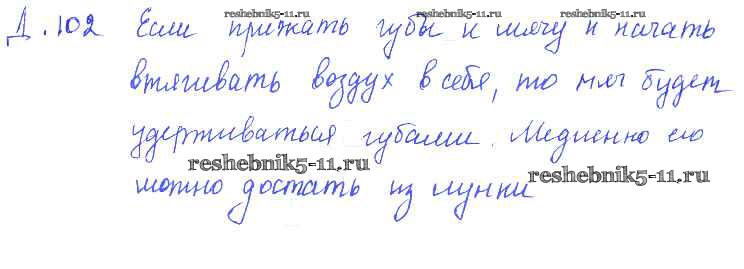 reshebnik5-11.ru reshebnik5-11.ru reshebnik5-11.ru
Д.102 Если прижать губы к мячу и начать
втягивать воздух в себя, то мяч будет
удерживаться губами. Медленно его
reshebnik5-11.ru reshebnik5-11.ru
можно достать из лунки